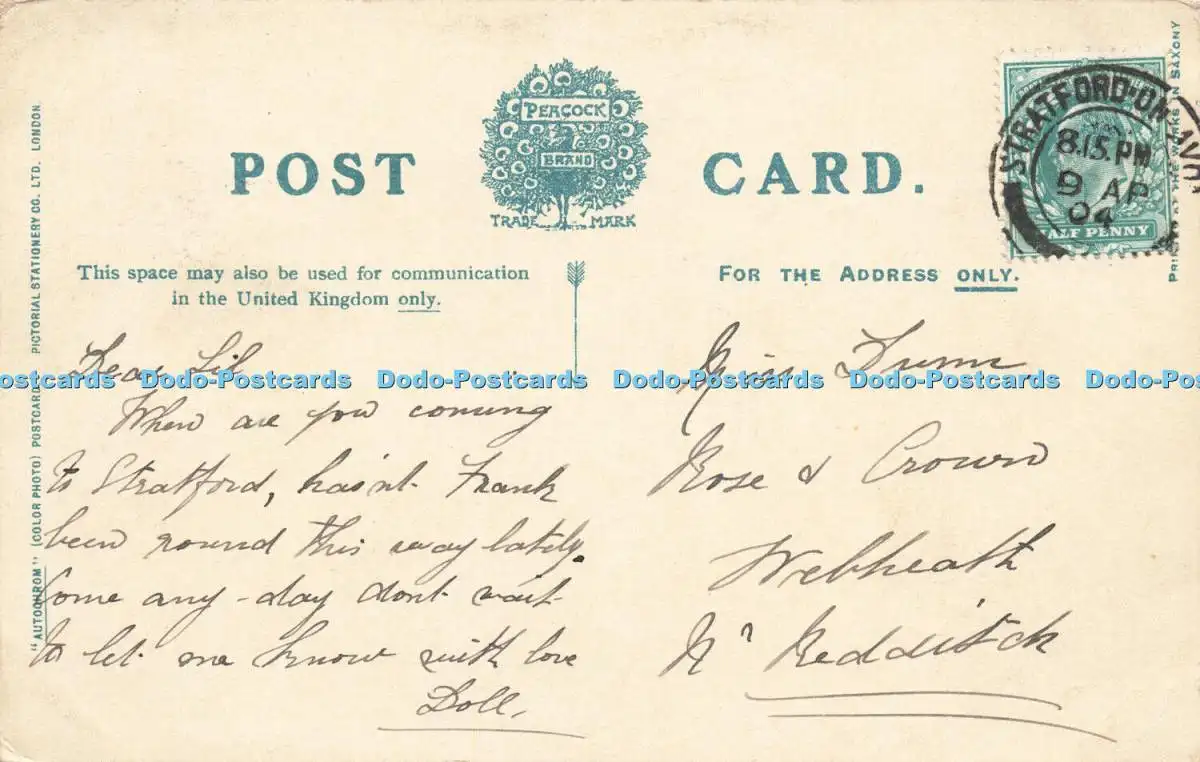 POST CARD.
PEACOCK
BRAND
TRADE MARK
This space may also be used for communication
in the United Kingdom only.
FOR THE ADDRESS ONLY.
STRATFORD-ON-AVO
8.15.PM
9 AP
04
HALF PENNY
"AUTOCHROM" (COLOR PHOTO) POSTCARD PICTORIAL STATIONERY CO. LTD. LONDON.
IN SAXONY
Dear Lil
When are you coming
to Stratford, hasn't Frank
been round this way lately.
Come any-day dont wait
to let me know with love
Doll.
Miss Dunn
Rose & Crown
Webheath
Nr Redditch
Dodo-Postcards Dodo-Postcards Dodo-Postcards Dodo-Postcards